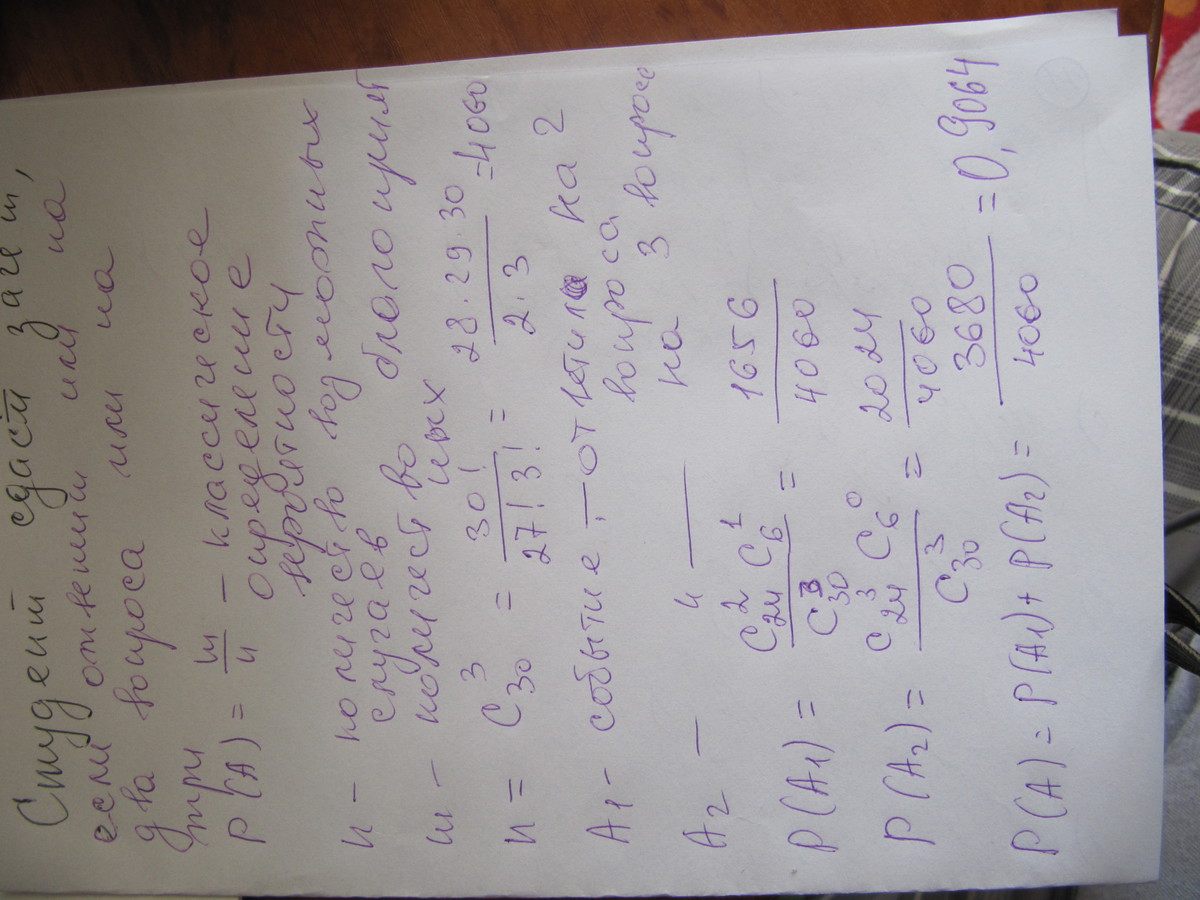 Студент сдаст зачет,
если ответит или на
два вопроса или на
три
P(A) = m/n – классическое
определение
вероятности
n – количество возможных
случаев
m – количество благоприят
ных
n = C₃₀³ = 30!/27!3! = 28·29·30/2·3 = 4060
A₁ – событие – ответил на 2
вопроса
A₂ – " — на 3 вопрос
P(A₁) = C₂₄² C₆¹/C₃₀³ = 1656/4060
P(A₂) = C₂₄³ C₆⁰/C₃₀³ = 2024/4060
P(A) = P(A₁) + P(A₂) = 3680/4060 = 0,9064